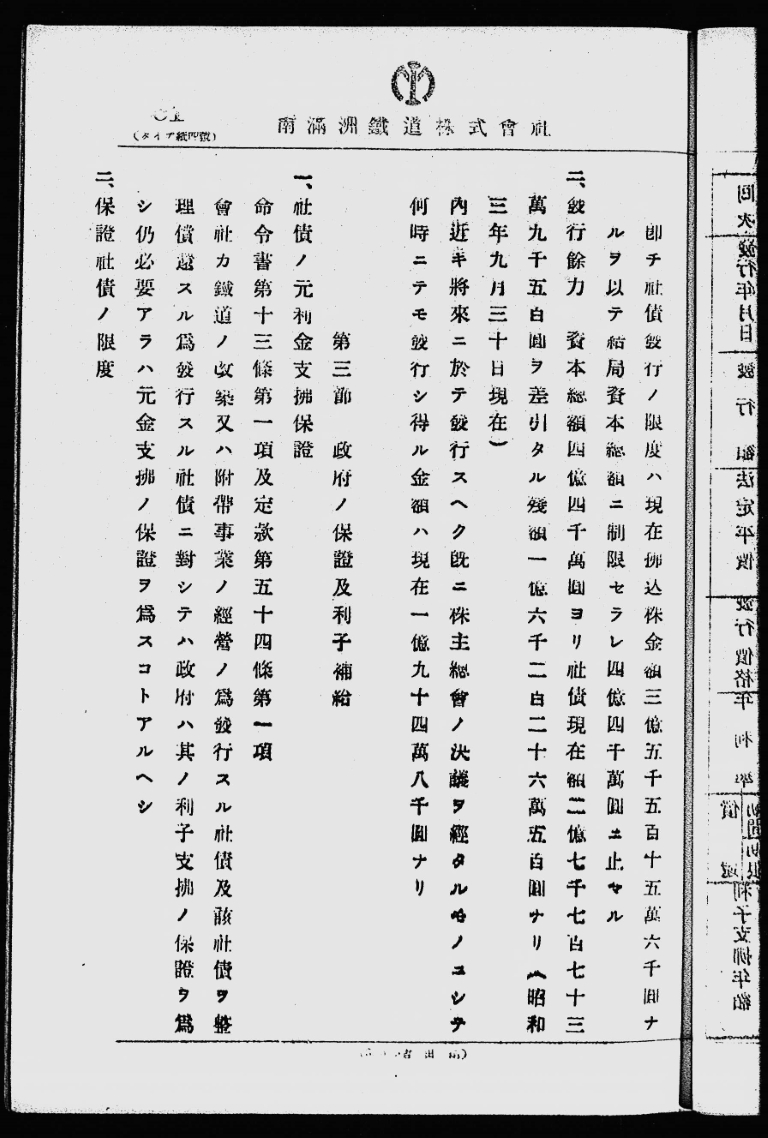 南滿洲鐵道株式會社
(タイプ紙四號)
卽チ社債發行ノ限度ハ現在拂込株金額三億五千五百十五萬六千圓ナ
ルヲ以テ結局資本總額ニ制限セラレ四億四千萬圓ニ止マル
二、發行餘力 資本總額四億四千萬圓ヨリ社債現在額二億七千七百七十三
萬九千五百圓ヲ差引タル殘額一億六千二百二十六萬五百圓ナリ(昭和
三年九月三十日現在)
內近キ將來ニ於テ發行スヘク既ニ株主總會ノ決議ヲ經タルモノニシテ
何時ニテモ發行シ得ル金額ハ現在一億九十四萬八千圓ナリ
第三節 政府ノ保證及利子補給
一、社債ノ元利金支拂保證
命令書第十三條第一項及定款第五十四條第一項
會社カ鐵道ノ改築又ハ附帶事業ノ經營ノ爲發行スル社債及該社債ヲ整
理償還スル爲發行スル社債ニ對シテハ政府ハ其ノ利子支拂ノ保證ヲ爲
シ仍必要アラハ元金支拂ノ保證ヲ爲スコトアルヘシ
二、保證社債ノ限度